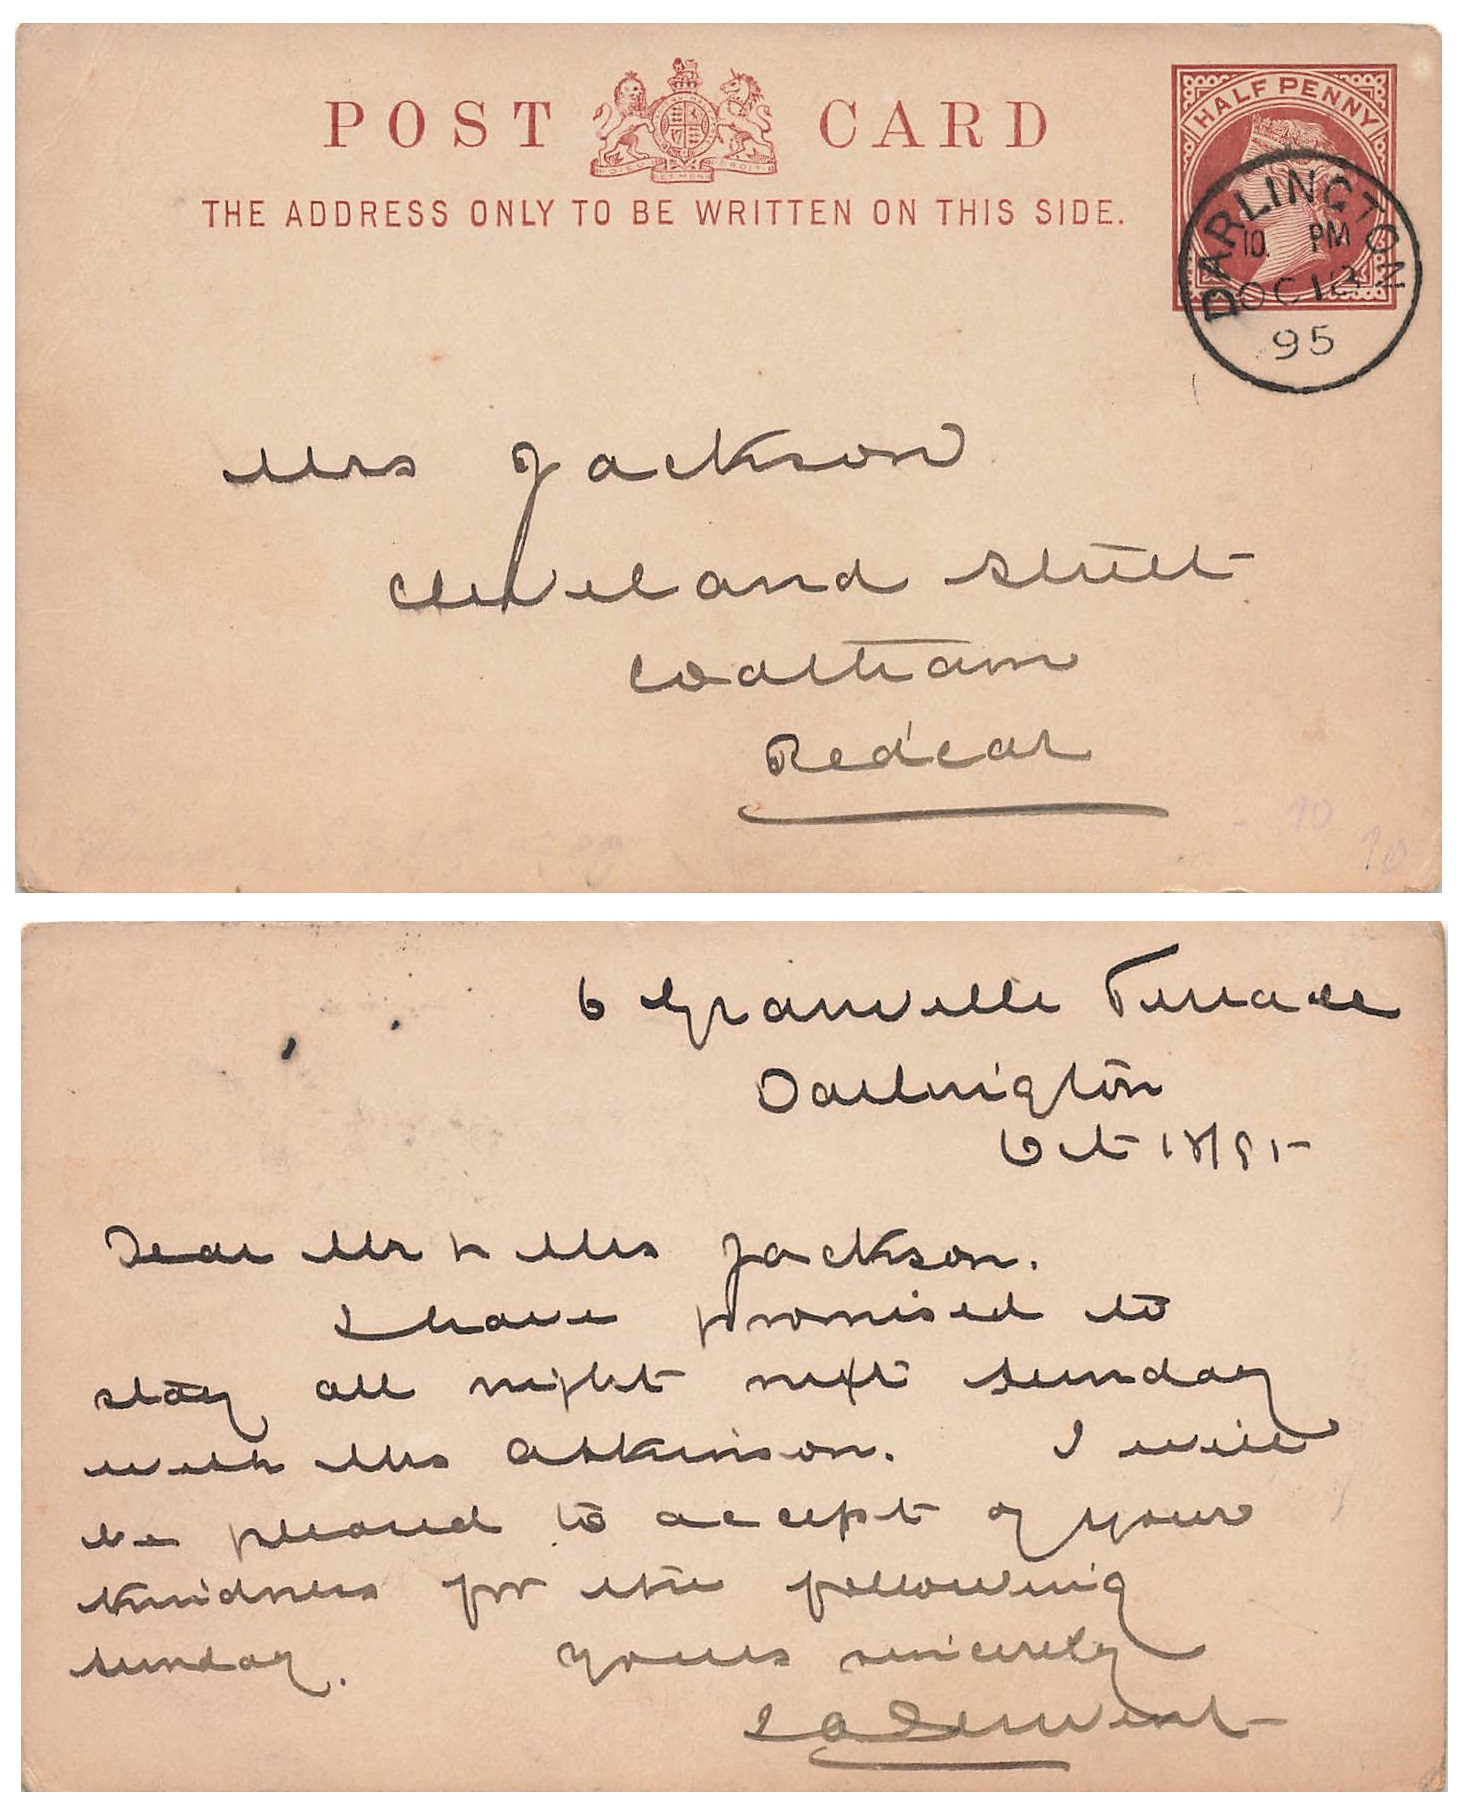 POST CARD
THE ADDRESS ONLY TO BE WRITTEN ON THIS SIDE.
HALF PENNY
DARLINGTON
10 PM
OC 18
95
Mrs Jackson
Cleveland Street
Coatham
Redcar
6 Granville Terrace
Darlington
Oct 18/95
Dear Mr & Mrs Jackson.
I have promised to
stay all night next Sunday
with Mrs Atkinson. I will
be pleased to accept of your
kindness for the following
Sunday. Yours sincerely